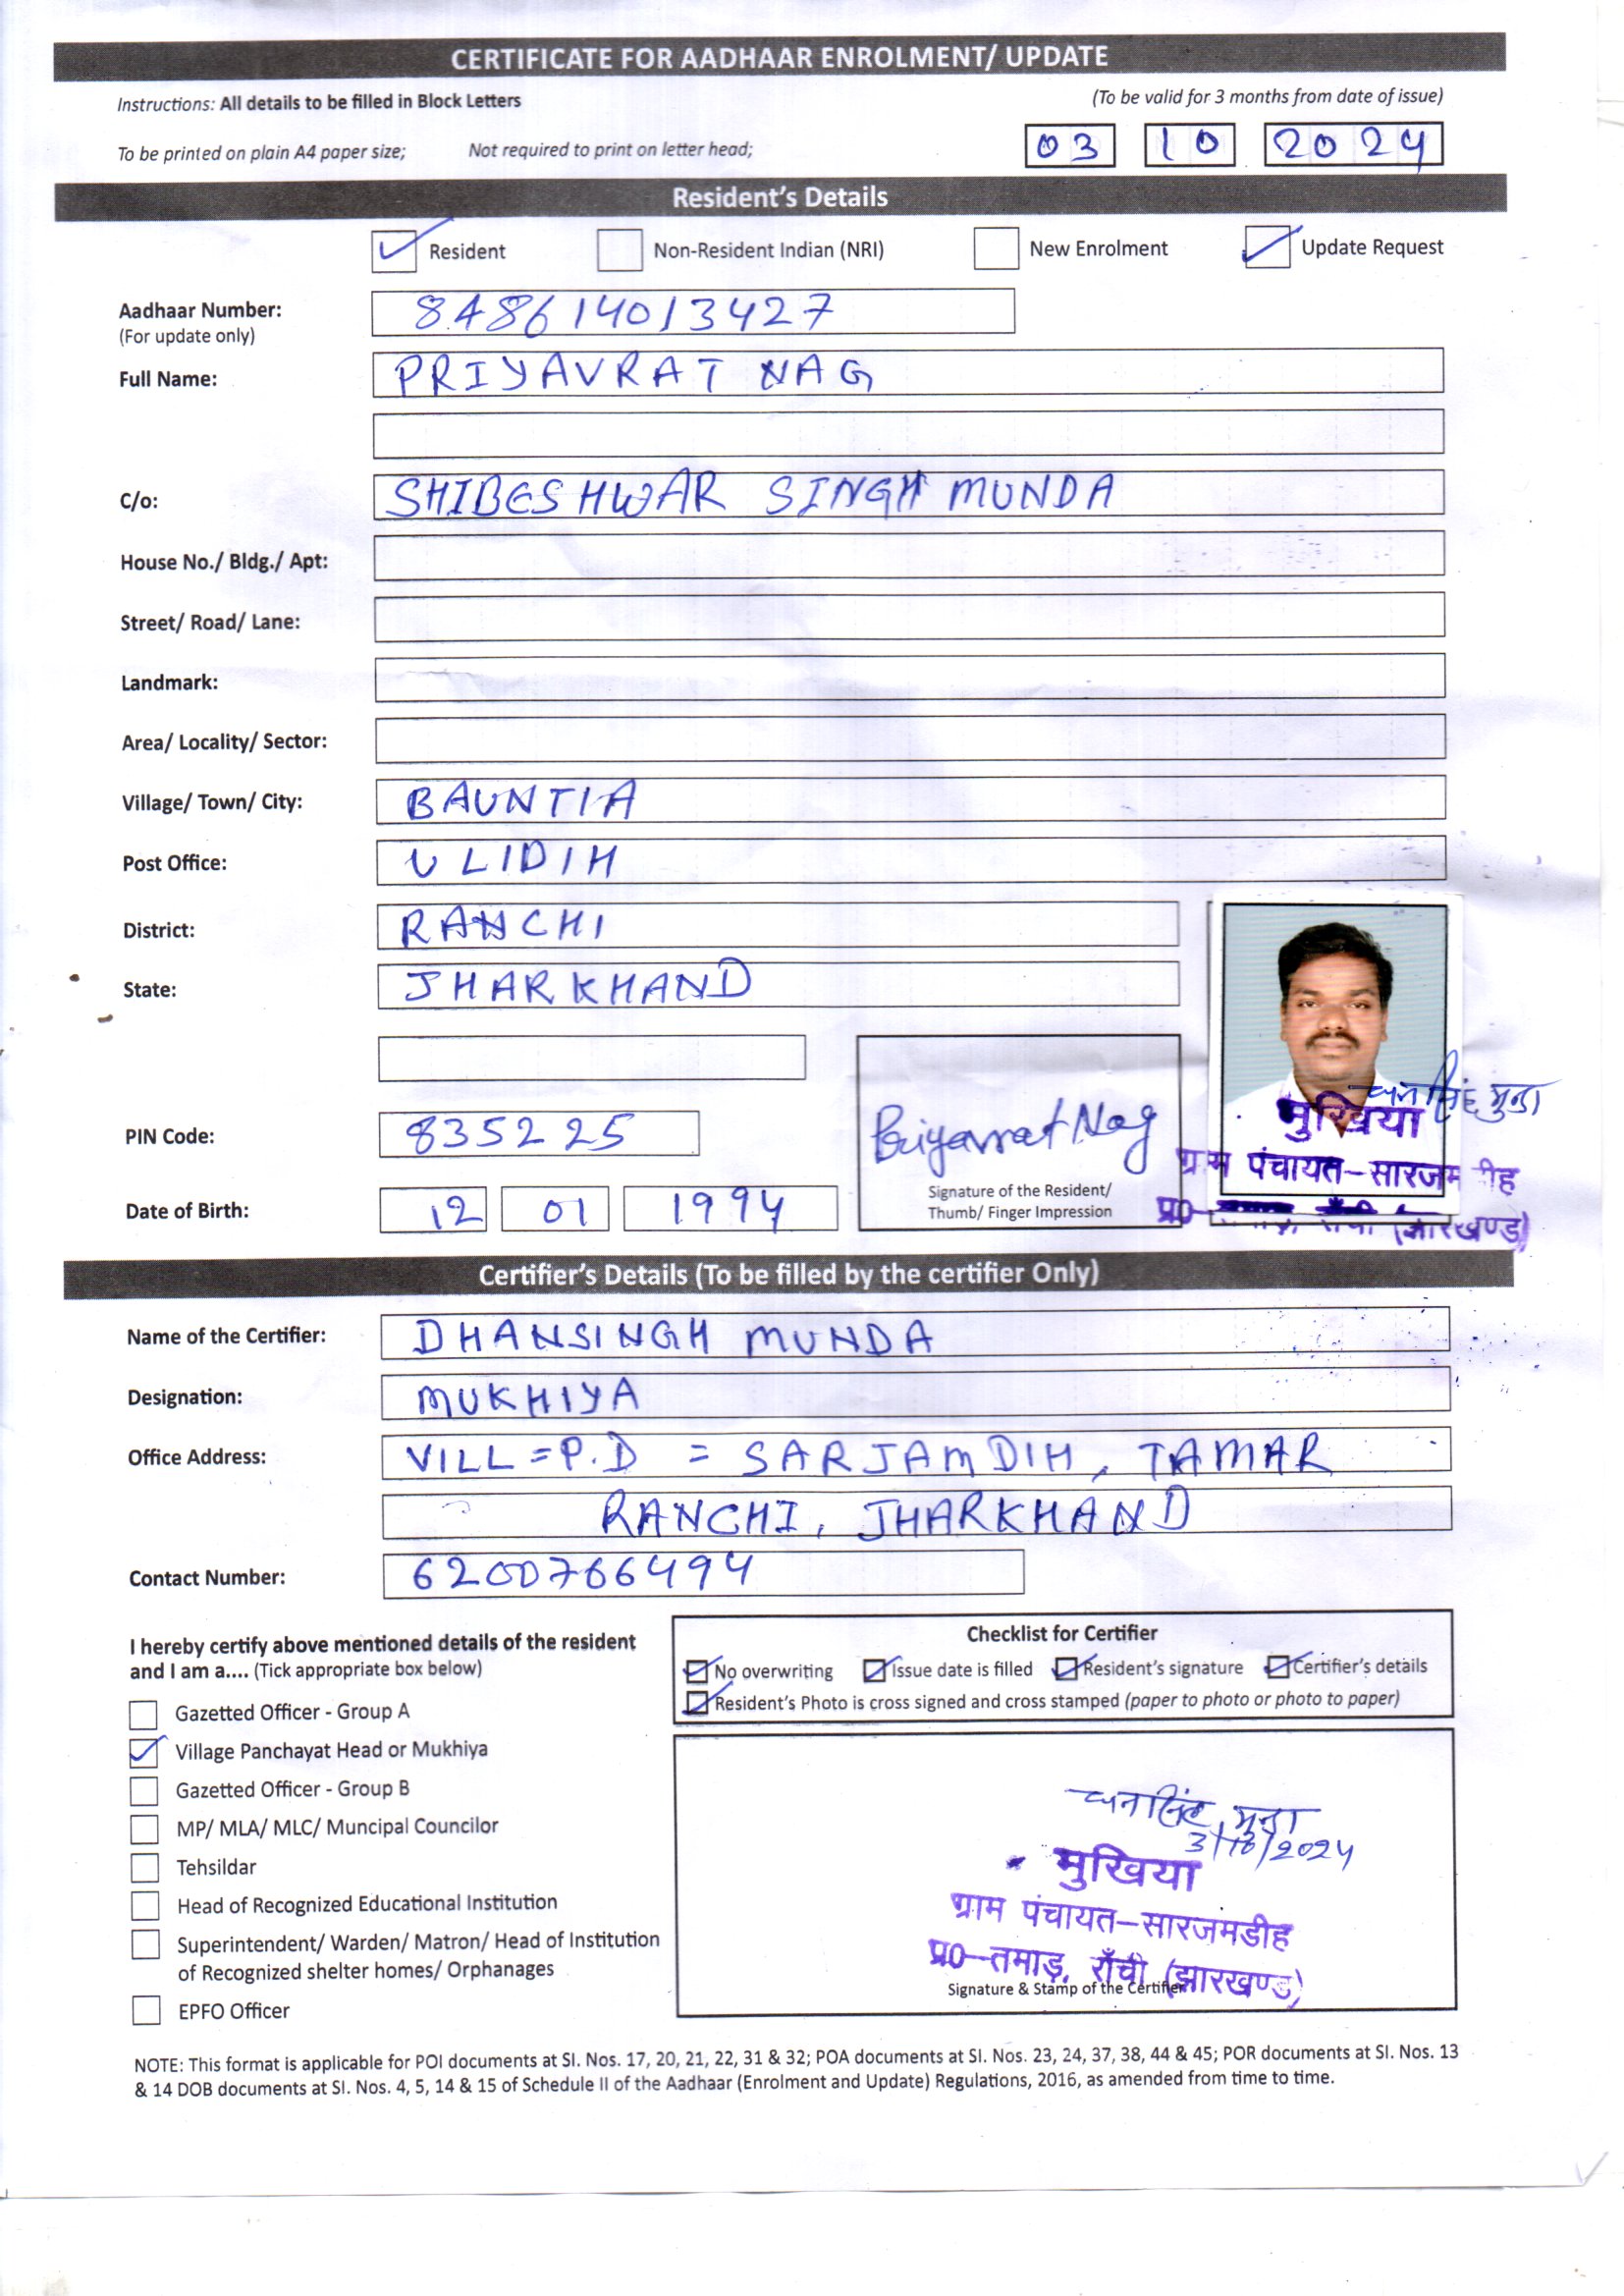 CERTIFICATE FOR AADHAAR ENROLMENT/ UPDATE
Instructions: All details to be filled in Block Letters
(To be valid for 3 months from date of issue)
To be printed on plain A4 paper size; Not required to print on letter head;
03 10 2024
Resident's Details
Resident Non-Resident Indian (NRI) New Enrolment Update Request
Aadhaar Number: 848614013427
(For update only)
Full Name: PRIYAVRAT NAG
C/o: SHIBESHWAR SINGH MUNDA
House No./ Bldg./ Apt:
Street/ Road/ Lane:
Landmark:
Area/ Locality/ Sector:
Village/ Town/ City: BAUNTIA
Post Office: ULIDIH
District: RANCHI
State: JHARKHAND
PIN Code: 835225
Priyavrat Nag
Signature of the Resident/
Thumb/ Finger Impression
धनसिंह मुन्डा
मुखिया
ग्राम पंचायत–सारजमडीह
प्र०– राँची (झारखण्ड)
Date of Birth: 12 01 1994
Certifier's Details (To be filled by the certifier Only)
Name of the Certifier: DHANSINGH MUNDA
Designation: MUKHIYA
Office Address: VILL = P.D = SARJAMDIH, TAMAR
RANCHI, JHARKHAND
Contact Number: 6200766494
I hereby certify above mentioned details of the resident
and I am a.... (Tick appropriate box below)
Gazetted Officer - Group A
Village Panchayat Head or Mukhiya
Gazetted Officer - Group B
MP/ MLA/ MLC/ Muncipal Councilor
Tehsildar
Head of Recognized Educational Institution
Superintendent/ Warden/ Matron/ Head of Institution
of Recognized shelter homes/ Orphanages
EPFO Officer
Checklist for Certifier
No overwriting Issue date is filled Resident's signature Certifier's details
Resident's Photo is cross signed and cross stamped (paper to photo or photo to paper)
धनसिंह मुन्डा
3/10/2024
मुखिया
ग्राम पंचायत–सारजमडीह
प्र०–तमाड़, राँची (झारखण्ड)
Signature & Stamp of the Certifier
NOTE: This format is applicable for POI documents at Sl. Nos. 17, 20, 21, 22, 31 & 32; POA documents at Sl. Nos. 23, 24, 37, 38, 44 & 45; POR documents at Sl. Nos. 13
& 14 DOB documents at Sl. Nos. 4, 5, 14 & 15 of Schedule II of the Aadhaar (Enrolment and Update) Regulations, 2016, as amended from time to time.